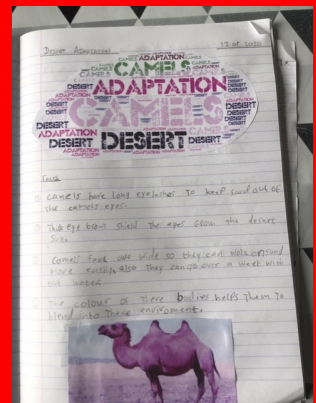 Desert Adaptation 17.05.2020
CAMELS ADAPTATION CAMELS
CAMELS CAMELS CAMELS
DESERT ADAPTATION
CAMELS DESERT
DESERT
ADAPTATION
DESERT DESERT DESERT
Camels have long eyelashes to keep sand out of
the camels eyes.
Thick eye brows shield the eyes from the desert
Sun.
Camels feet are wide so they can walk on sand
more easily, also they can go over a week with
out water
The colour of There bodies helps Them to
blend into There enviroment.